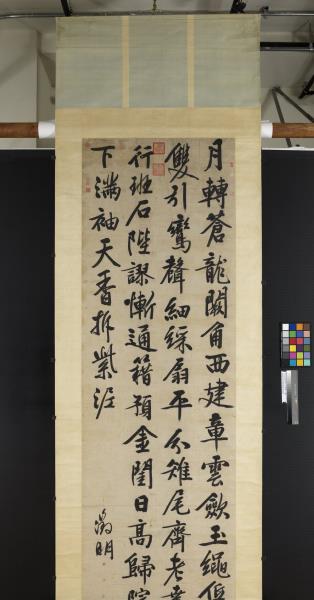 月轉蒼龍闕角西建章雲斂玉繩低
雙引鸞聲細綵扇平分雉尾齊老幸
行班石陛謬慚通籍預金閨日高歸院
下滿袖天香拆紫泥
徵明